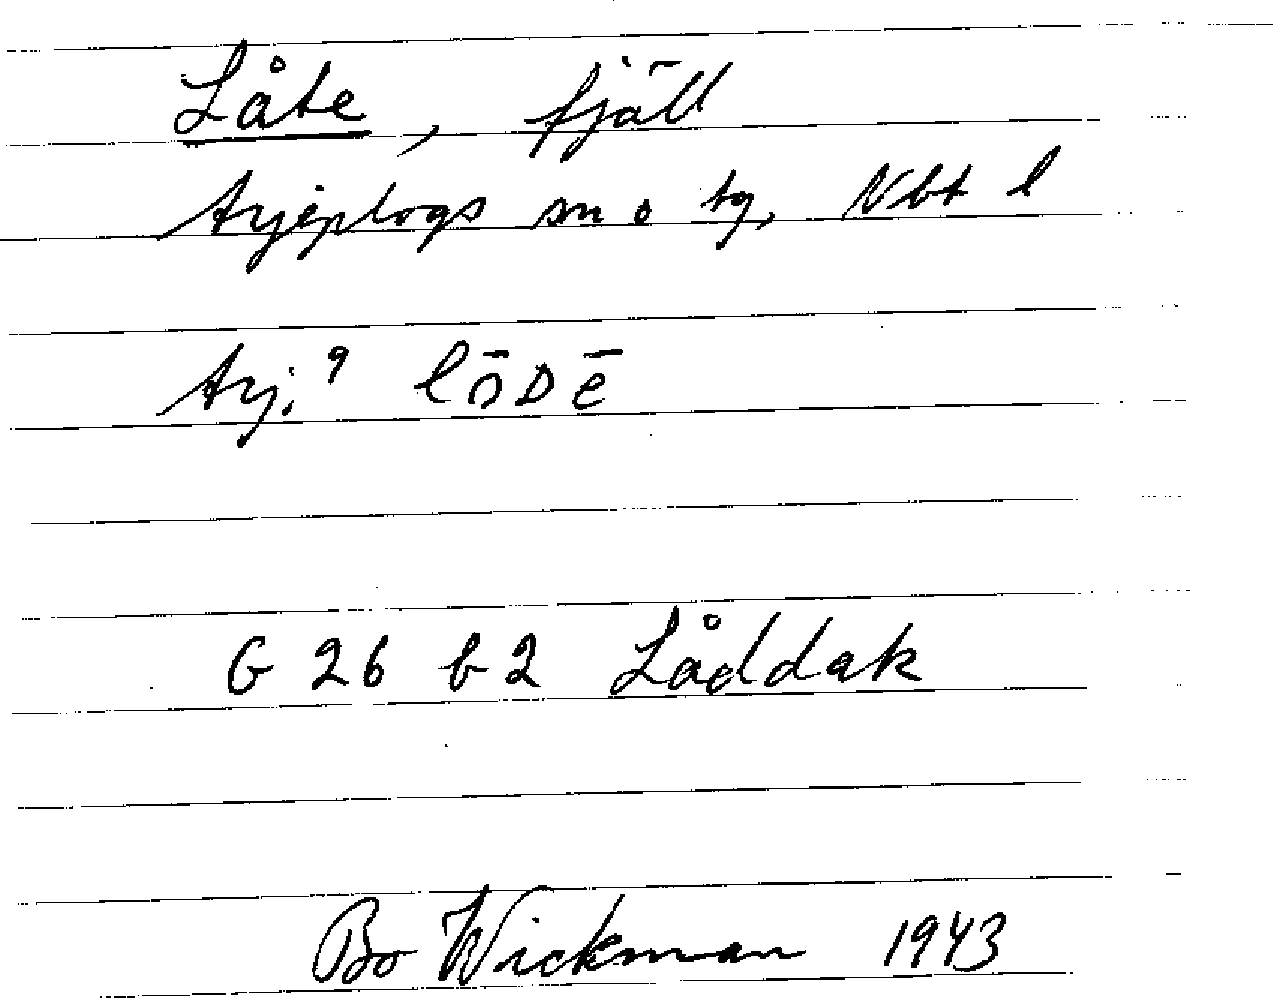 Låte, fjäll
Arjeplogs sn o tg, Nbt l
Arj.⁹ lōᴅē
G 26 b 2 Låddak
Bo Wickman 1943